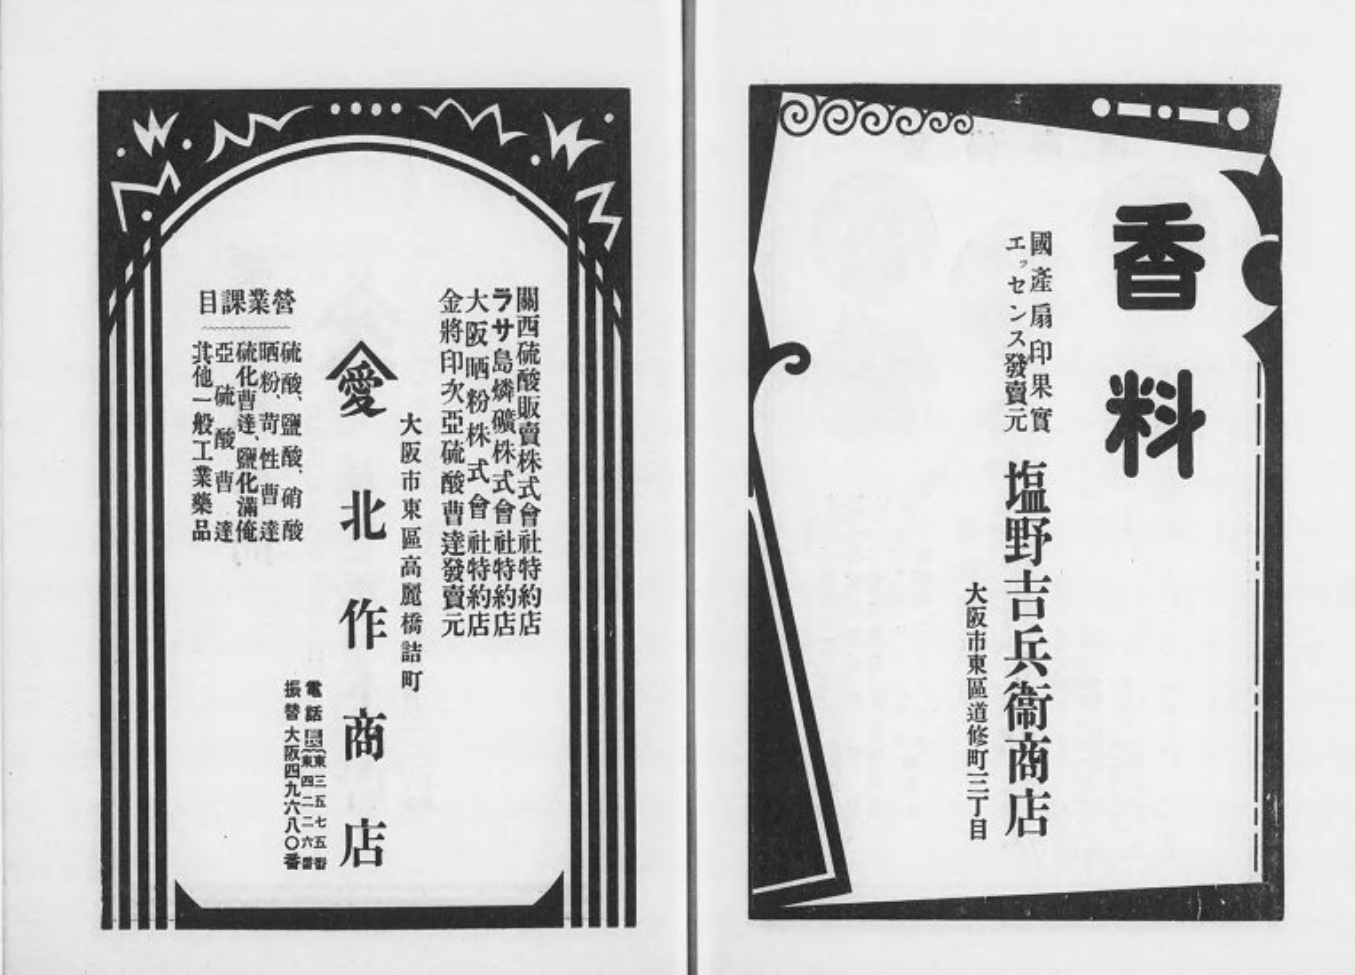 香料
國產扇印果實
エッセンス發賣元
塩野吉兵衞商店
大阪市東區道修町三丁目
關西硫酸販賣株式會社特約店
ラサ島燐礦株式會社特約店
大阪晒粉株式會社特約店
金將印次亞硫酸曹達發賣元
大阪市東區高麗橋詰町
愛北作商店
電話長東三五七五番
東四二二六番
振替大阪四九六八〇番
營業課目
硫酸、鹽酸、硝酸
晒粉、苛性曹達
硫化曹達、鹽化滿俺
亞硫酸曹達
其他一般工業藥品